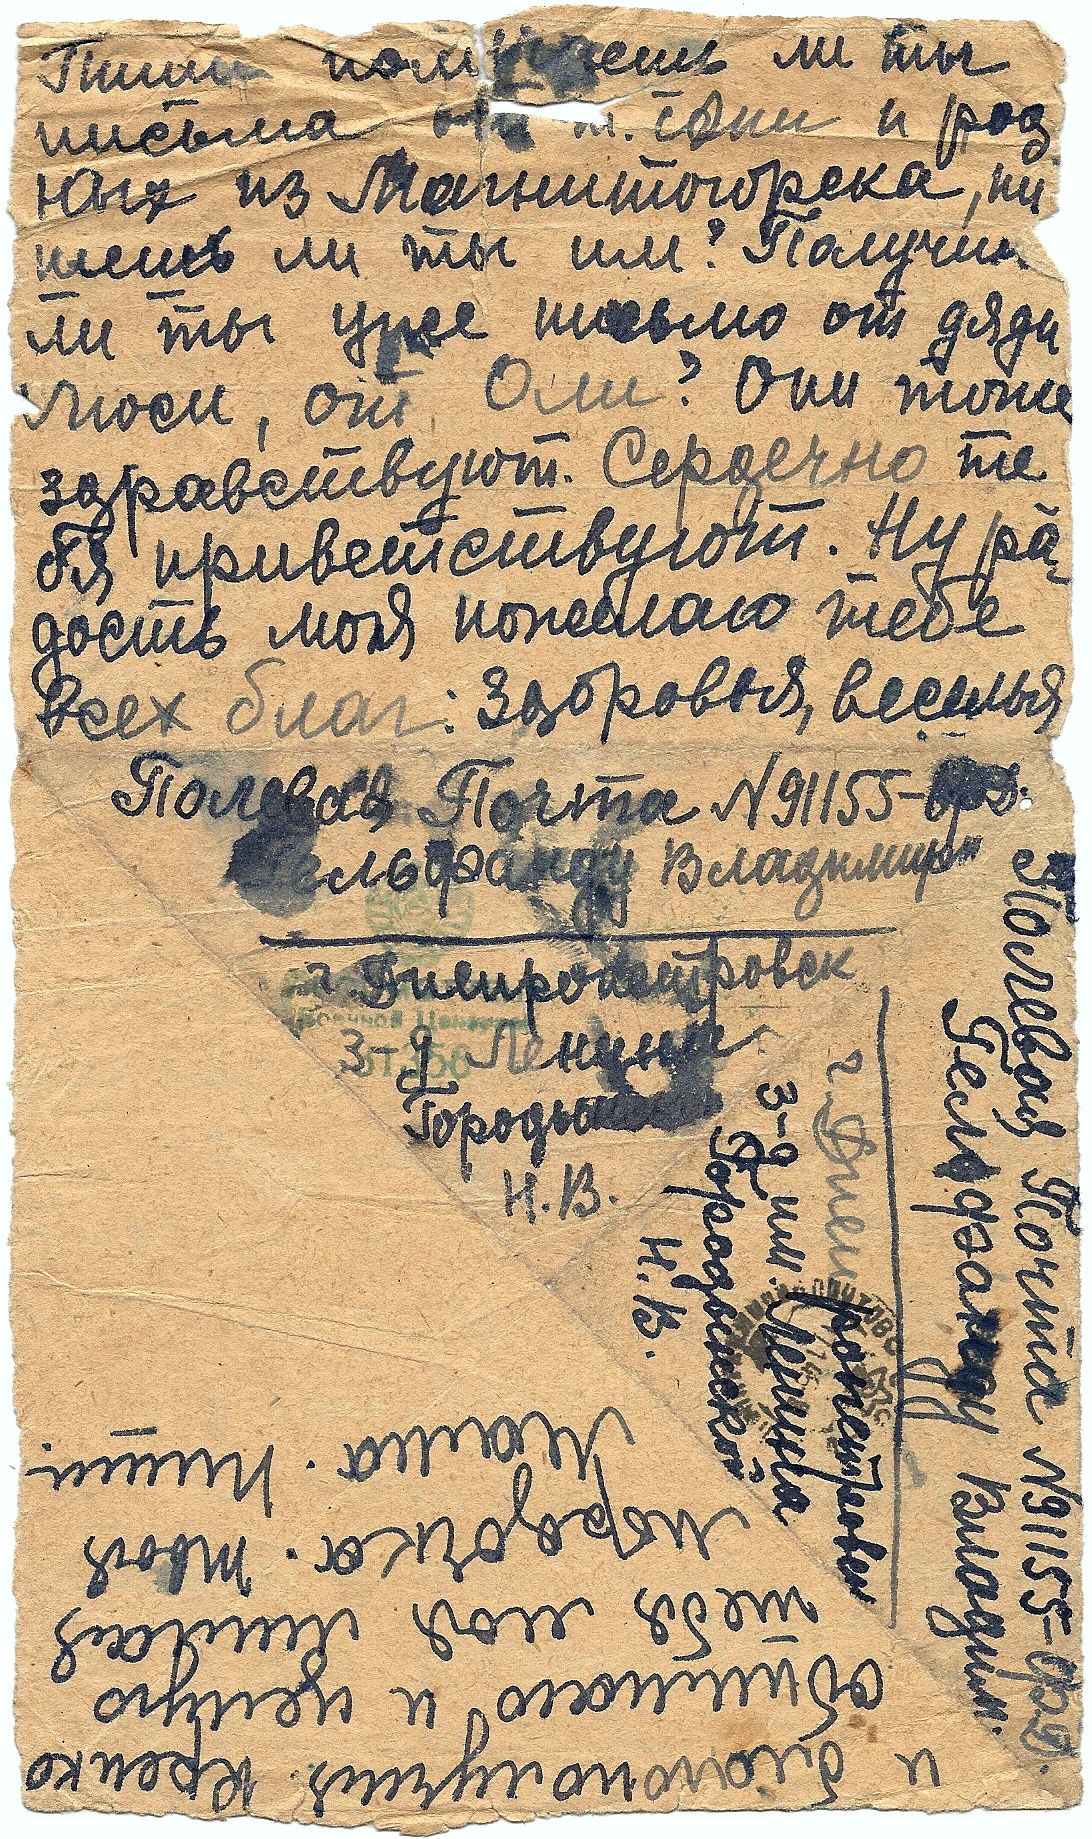 Пиши получаешь ли ты
письма от т. Ани и род
ных из Магнитогорска, пи
шешь ли ты им? Получил
ли ты уже письмо от дяди
Люси, от Оли? Они тоже
здравствуют. Сердечно те
бя приветствуют. Ну ра-
дость моя пожелаю тебе
всех благ: здоровья, веселья
Полевая Почта N 91155-
Гельфанду Владимир
г. Днепропетровск
з-д Ленина
Городынской
Н.В.
Полевая Почта N 91155-
Гельфанду Владим.
г. Днепропетровск
з-д им. Ленина
Городынской
Н.В.
и благополучия. Крепко
обнимаю и целую
тебя моя милая
мордочка. Твоя
Мама. Пиши.